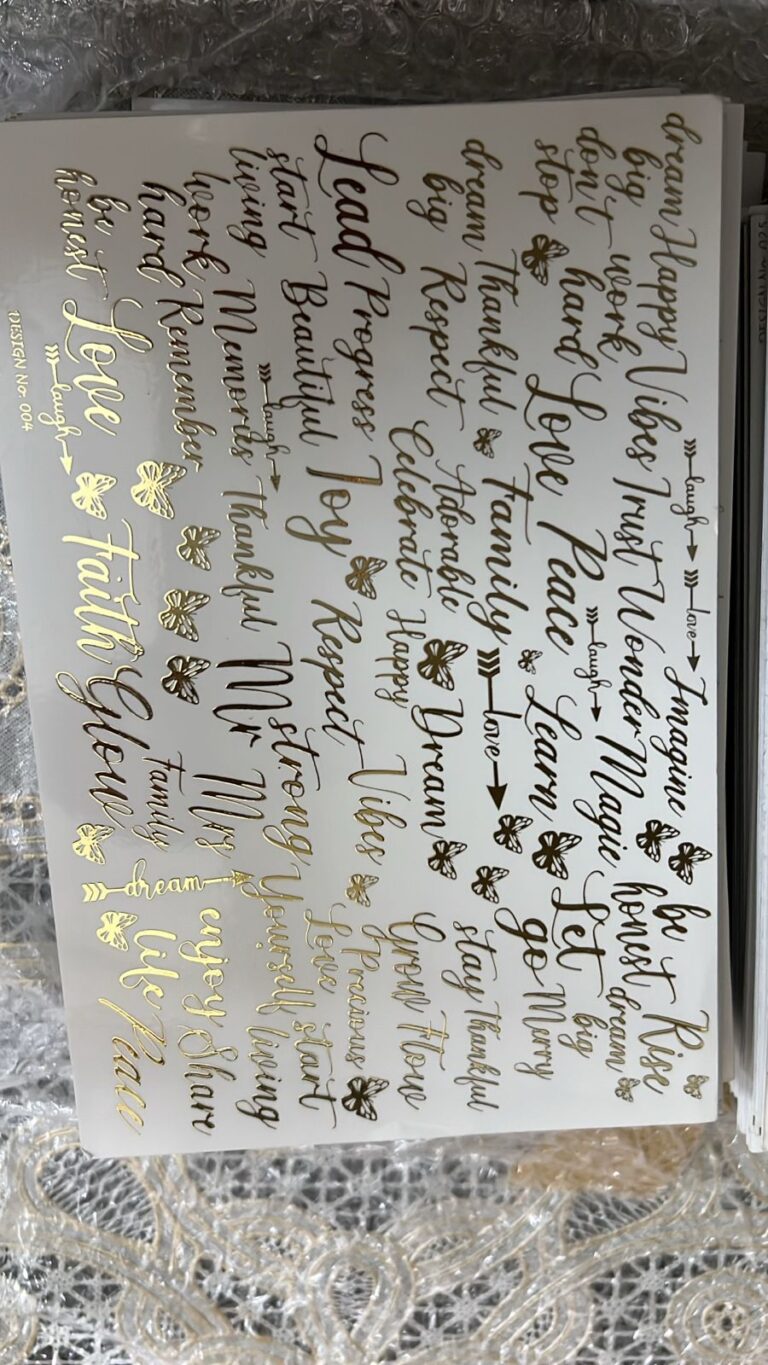 laugh love Imagine be Rise
dream big Happy Vibes Trust Wonder Magic honest dream big
don't stop work hard Love Peace laugh Learn Let go Merry
dream big Thankful Family love stay Thankful
Respect Adorable Dream Grow Flow
Celebrate Happy
Lead Progress Joy Respect Vibes Precious
start living Beautiful laugh strong Love start living
Memories Thankful Mr Mrs Yourself
work hard Remember Family enjoy life Share
be honest Love Faith Glow dream Peace
laugh
DESIGN No. 004